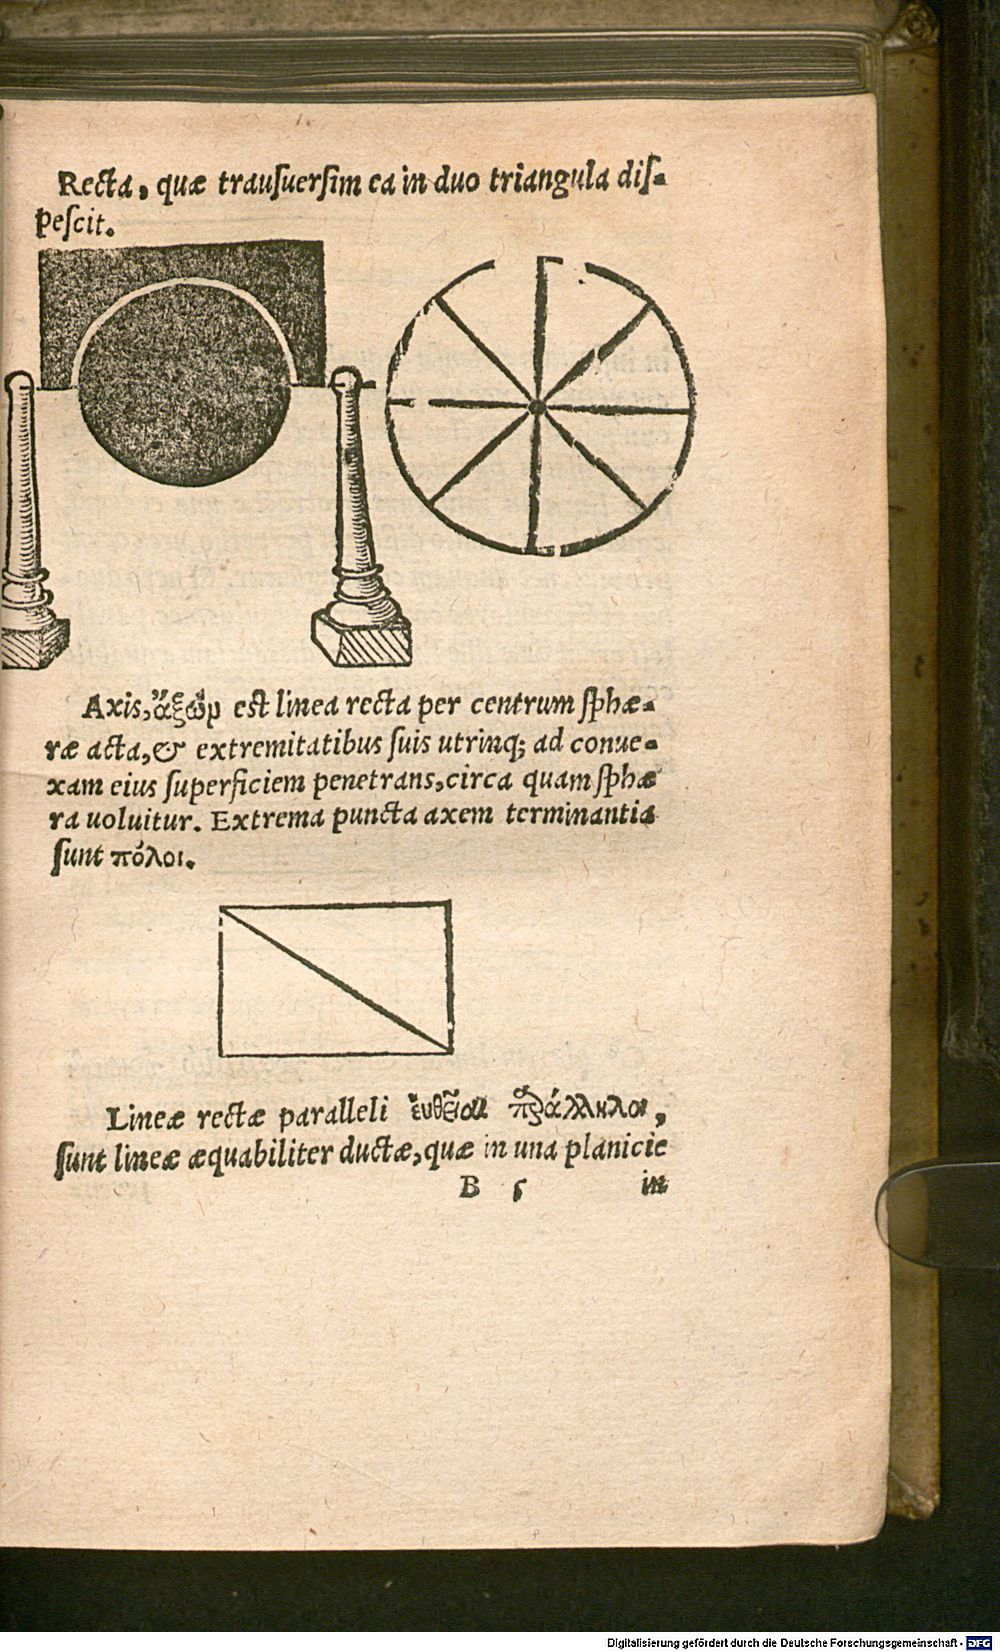 Recta, quæ trauſuerſim ea in duo triangula diſ-
peſcit.
Axis, ἄξωμ eſt linea recta per centrum ſphæ-
ræ acta, & extremitatibus ſuis utrinq; ad conue-
xam eius ſuperficiem penetrans, circa quam ſphæ
ra uoluitur. Extrema puncta axem terminantia
ſunt πόλοι.
Lineæ rectæ paralleli ἐυθεῖαι παράλληλοι,
ſunt lineæ æquabiliter ductæ, quæ in una planicie
B 5 in
Digitalisierung gefördert durch die Deutsche Forschungsgemeinschaft - DFG